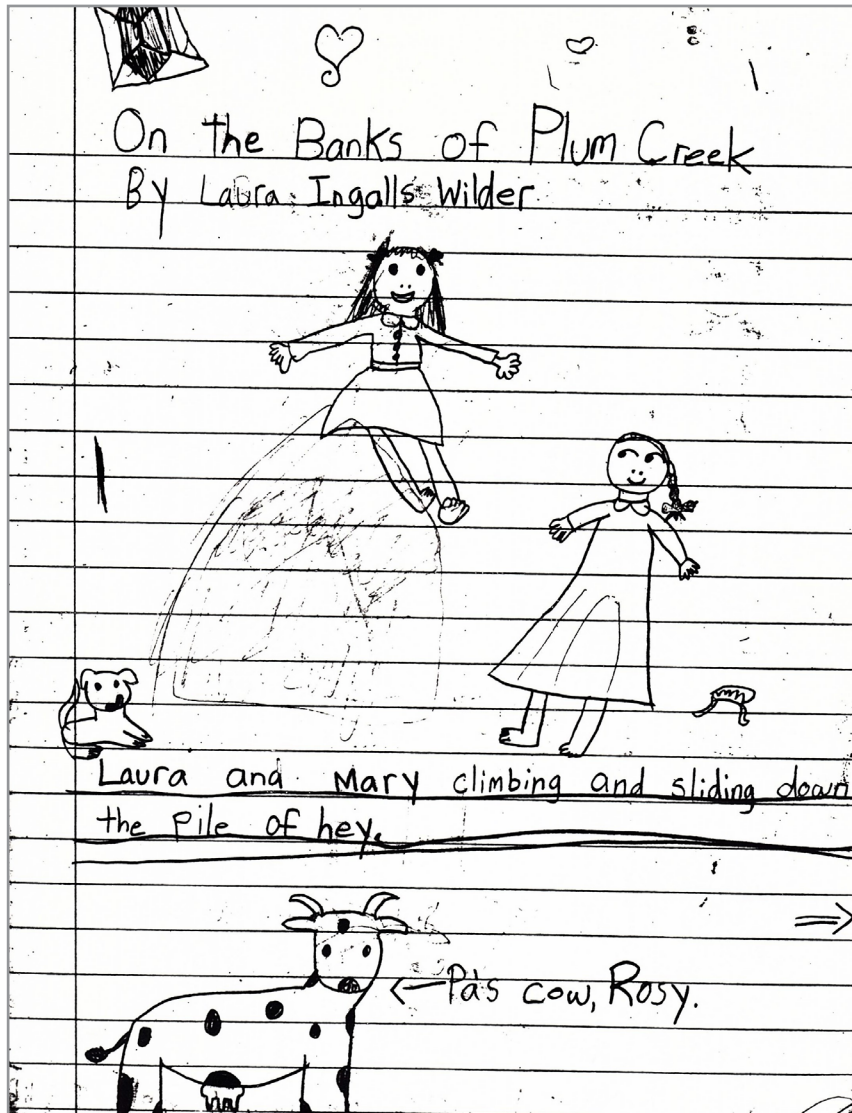 On the Banks of Plum Creek
By Laura Ingalls Wilder
Laura and Mary climbing and sliding down
the pile of hey.
Pa's cow, Rosy.